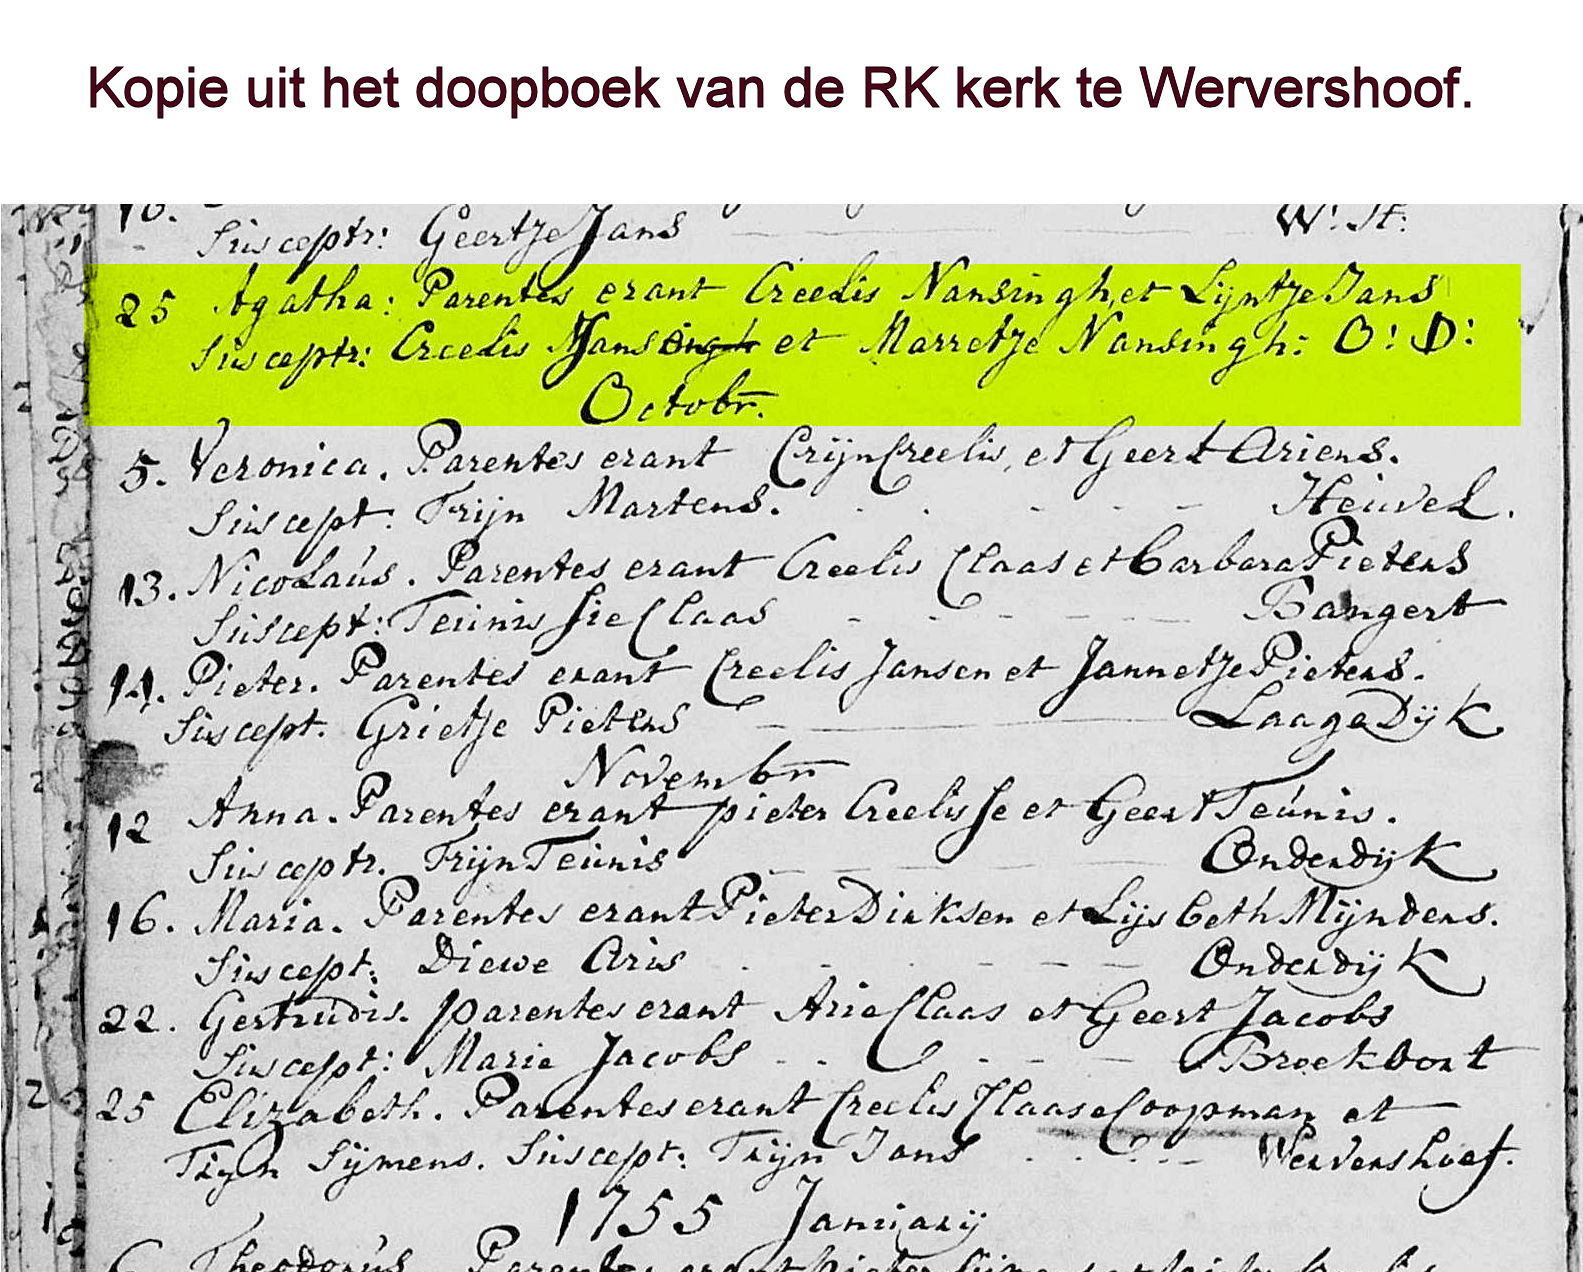 Kopie uit het doopboek van de RK kerk te Wervershoof.
Susceptr: Geertje Jans W: St:
25 Agatha: Parentes erant Creelis Nansingh, et Lijntje Jans
Susceptr: Creelis Jans et Marretje Nansingh: O: D:
Octobr.
5. Veronica. Parentes erant Crijn Creelis, et Geert Ariens.
Suscept: Trijn Martens. Heuvel.
13. Nicolaus. Parentes erant Creelis Claas et Barbara Pieters
Suscept: Teunis Sie Claas Bangert
14. Pieter. Parentes erant Creelis Jansen et Jannetje Pieters.
Suscept. Grietje Pieters Laage Dijk
Novembr
12 Anna. Parentes erant pieter Creelisse et Geert Teunis.
Susceptr. Trijn Teunis Onderdijk
16. Maria. Parentes erant Pieter Dirksen et Lijsbeth Mijnders.
Suscept: Diewe Aris Onderdijk
22. Gertrudis. parentes erant Arie Claas et Geert Jacobs
Suscept: Marie Jacobs Broekoort
25 Elizabeth. Parentes erant Creelis Claase Coopman et
Trijn Sijmens. Suscept: Trijn Jans Wervershoef.
1755 Januarij
6 Theodorus. Parentes erant pieter